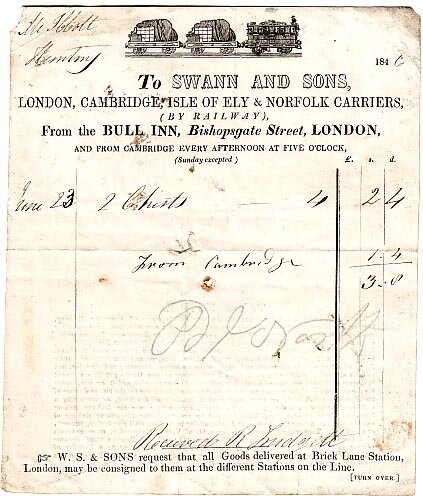 Mr Ibbott
184 6
To SWANN AND SONS,
LONDON, CAMBRIDGE, ISLE OF ELY & NORFOLK CARRIERS,
(BY RAILWAY),
From the BULL INN, Bishopsgate Street, LONDON,
AND FROM CAMBRIDGE EVERY AFTERNOON AT FIVE O'CLOCK,
(Sunday excepted)
£. s. d.
June 23 2 Chests — 4 2 4
From Cambridge 1 - 4
3 - 8
Received R
☞ W. S. & SONS request that all Goods delivered at Brick Lane Station,
London, may be consigned to them at the different Stations on the Line.
[TURN OVER.]